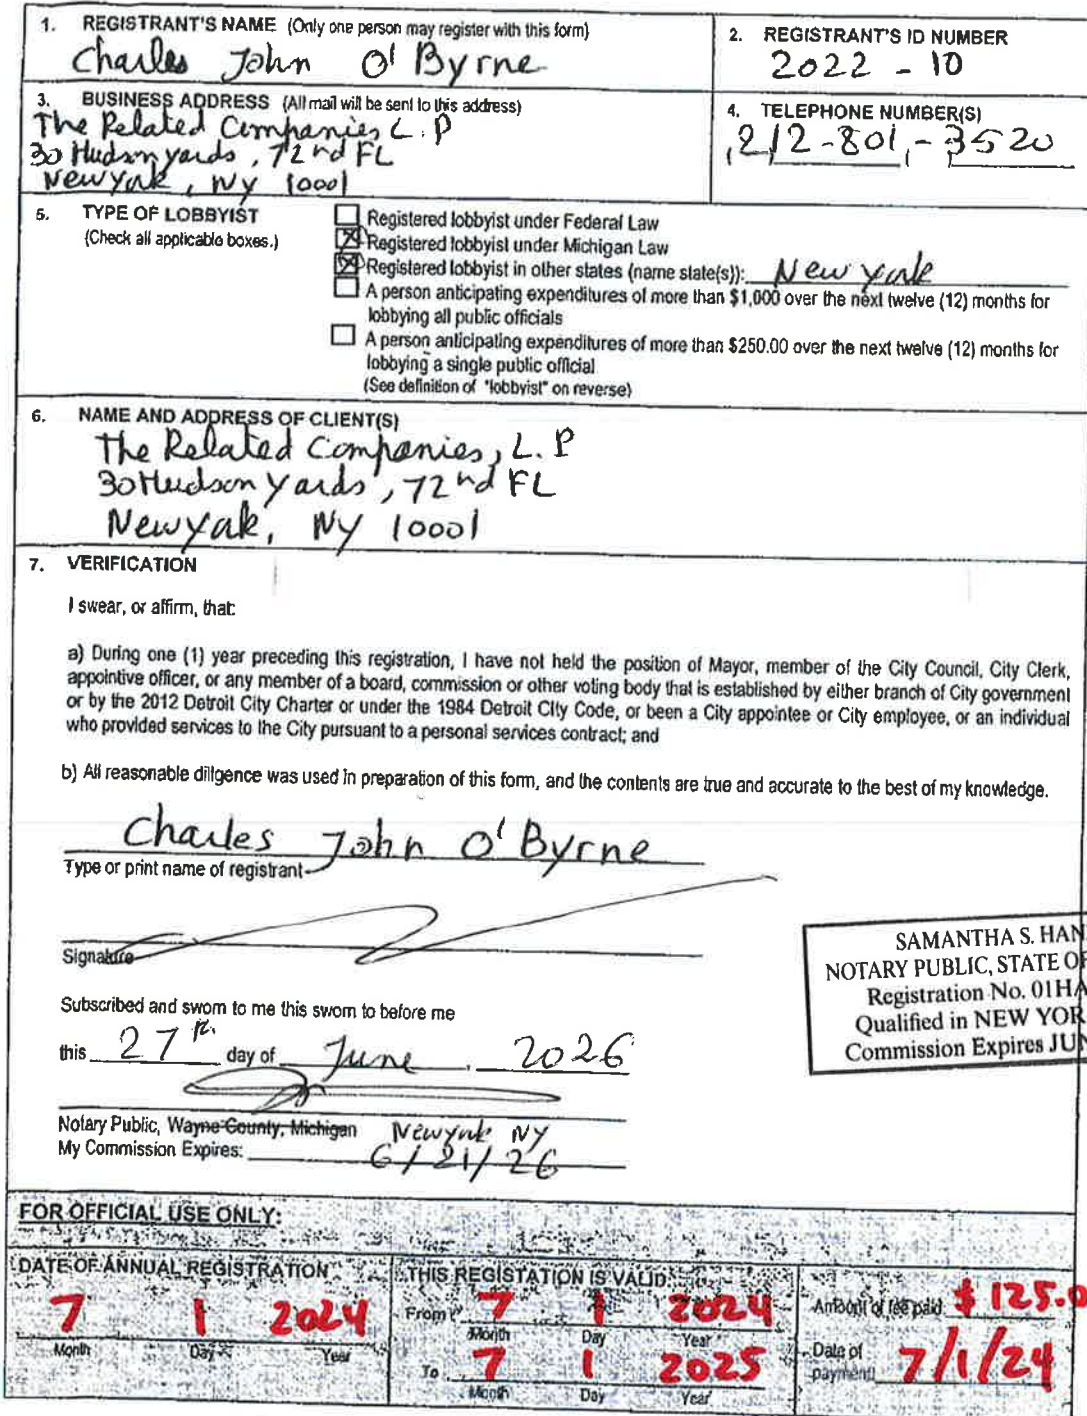 1. REGISTRANT'S NAME (Only one person may register with this form)
Charles John O'Byrne
2. REGISTRANT'S ID NUMBER
2022 - 10
3. BUSINESS ADDRESS (All mail will be sent to this address)
The Related Companies L.P
30 Hudson yards, 72nd FL
New York, NY 10001
4. TELEPHONE NUMBER(S)
212-801-3520
5. TYPE OF LOBBYIST
(Check all applicable boxes.)
Registered lobbyist under Federal Law
Registered lobbyist under Michigan Law
Registered lobbyist in other states (name state(s)): New York
A person anticipating expenditures of more than $1,000 over the next twelve (12) months for
lobbying all public officials
A person anticipating expenditures of more than $250.00 over the next twelve (12) months for
lobbying a single public official
(See definition of "lobbyist" on reverse)
6. NAME AND ADDRESS OF CLIENT(S)
The Related Companies, L.P
30 Hudson Yards, 72nd FL
New York, NY 10001
7. VERIFICATION
I swear, or affirm, that:
a) During one (1) year preceding this registration, I have not held the position of Mayor, member of the City Council, City Clerk,
appointive officer, or any member of a board, commission or other voting body that is established by either branch of City government
or by the 2012 Detroit City Charter or under the 1984 Detroit City Code, or been a City appointee or City employee, or an individual
who provided services to the City pursuant to a personal services contract; and
b) All reasonable diligence was used in preparation of this form, and the contents are true and accurate to the best of my knowledge.
Charles John O'Byrne
Type or print name of registrant
Signature
SAMANTHA S. HAN
NOTARY PUBLIC, STATE OF
Registration No. 01HA
Qualified in NEW YOR
Commission Expires JUN
Subscribed and sworn to me this sworn to before me
this 27th day of June, 2026
Notary Public, Wayne County, Michigan New York NY
My Commission Expires: 6/21/26
FOR OFFICIAL USE ONLY:
DATE OF ANNUAL REGISTRATION
7 1 2024
Month Day Year
THIS REGISTATION IS VALID:
From 7 1 2024
Month Day Year
To 7 1 2025
Month Day Year
Amount of fee paid $125.0
Date of
payment 7/1/24